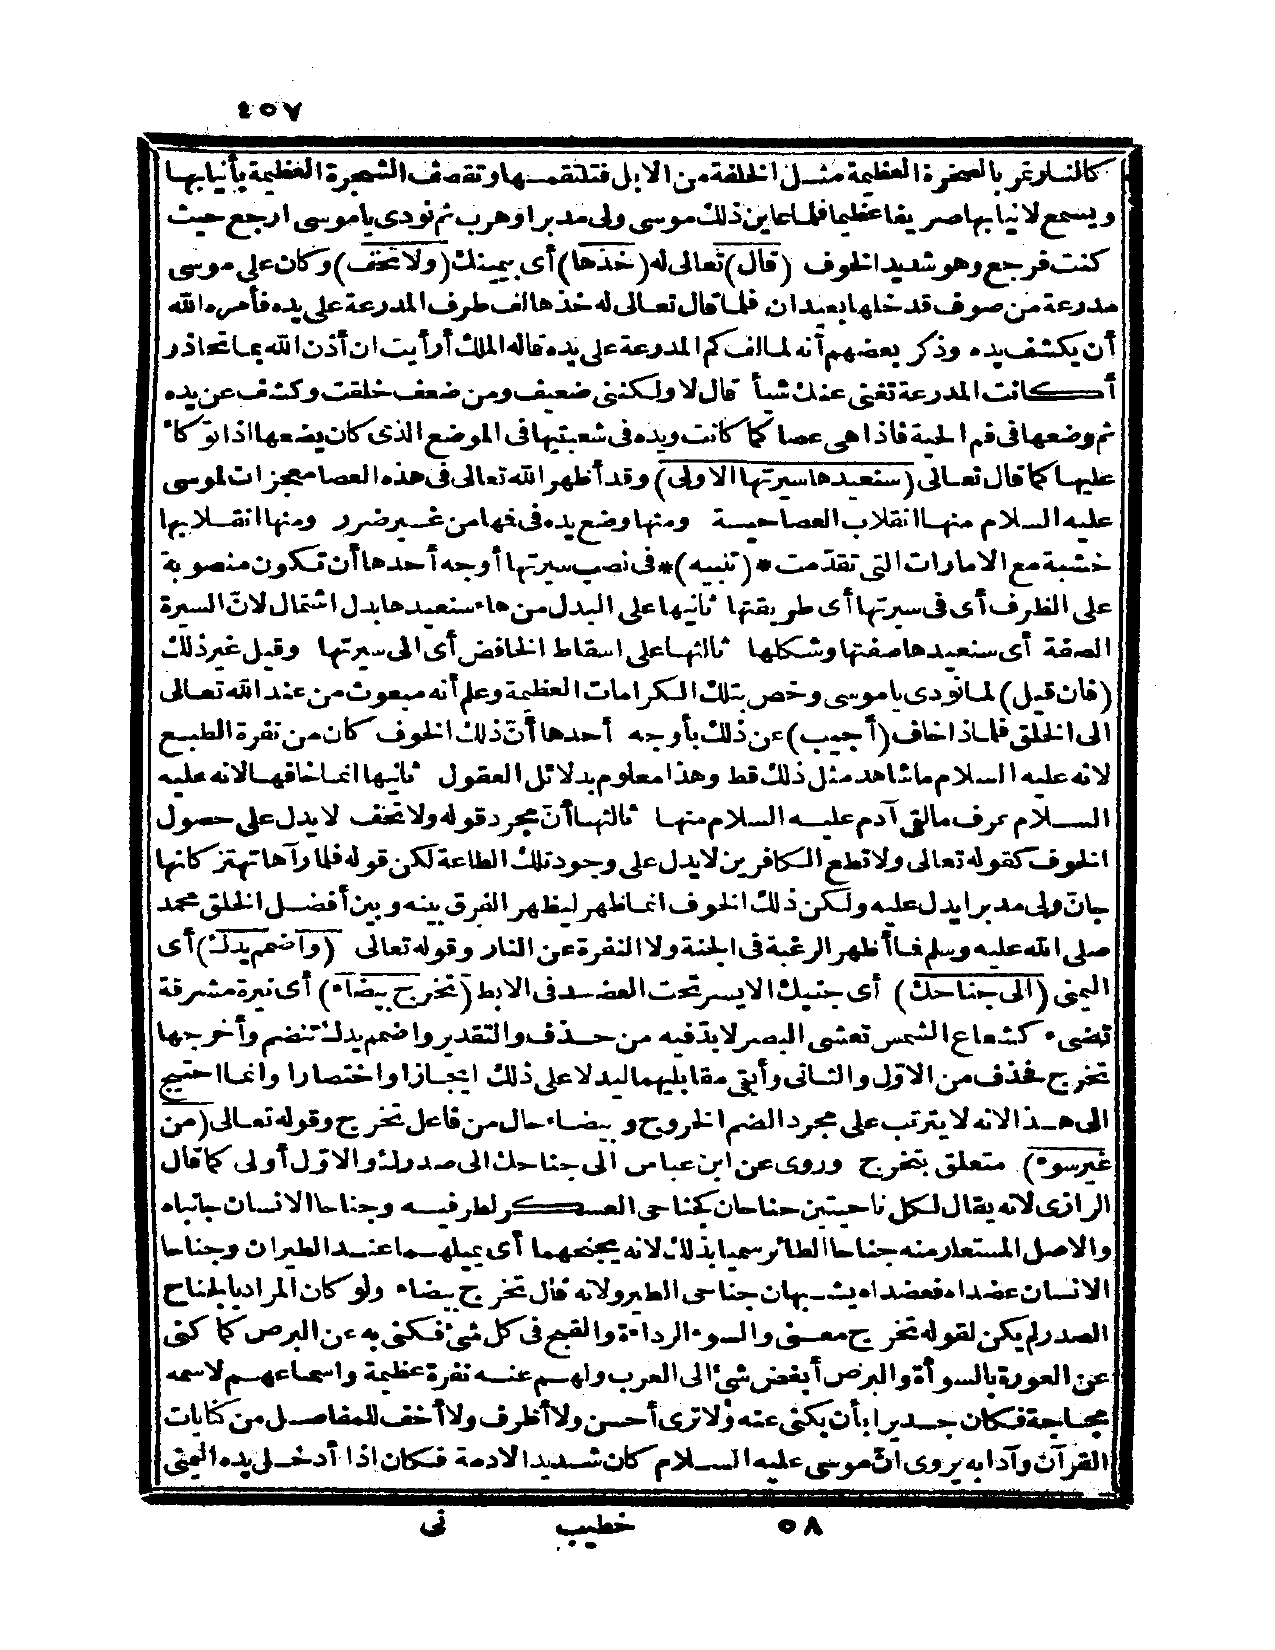 ٤٥٧
كالنار تمر بالصخرة العظيمة مثل الخلفة من الابل فتلتقمها وتقصف الشجرة العظيمة بأنيابها
ويسمع لانيابها صريفا عظيما فلما عاين ذلك موسى ولى مدبرا وهرب ثم نودى يا موسى ارجع حيث
كنت فرجع وهو شديد الخوف (قال) تعالى له (خذها) أى بيمينك (ولا تخف) وكان على موسى
مدرعة من صوف قد خلها بعيدان فلما قال تعالى له خذها لف طرف المدرعة على يده فأمره الله
أن يكشف يده وذكر بعضهم أنه لما لف كم المدرعة على يده قال له الملك أرأيت ان أذن الله بما تحاذر
أكانت المدرعة تغنى عنك شيأ قال لا ولكنى ضعيف ومن ضعف خلقت وكشف عن يده
ثم وضعها فى فم الحية فاذا هى عصا كما كانت ويده فى شعبتيها فى الموضع الذى كان يضعها اذا توكأ
عليها كما قال تعالى (سنعيدها سيرتها الاولى) وقد أظهر الله تعالى فى هذه العصا معجزات لموسى
عليه السلام منها انقلاب العصا حية ومنها وضع يده فى فمها من غير ضرر ومنها انقلابها
خشبة مع الامارات التى تقدمت * (تنبيه) * فى نصب سيرتها أوجه أحدها أن تكون منصوبة
على الظرف أى فى سيرتها أى طريقتها ثانيها على البدل من هاء سنعيدها بدل اشتمال لانّ السيرة
الصفة أى سنعيدها صفتها وشكلها ثالثها على اسقاط الخافض أى الى سيرتها وقيل غير ذلك
(فان قيل) لما نودى يا موسى وخص بتلك الكرامات العظيمة وعلم أنه مبعوث من عند الله تعالى
الى الخلق فلماذا خاف (أجيب) عن ذلك بأوجه أحدها أنّ ذلك الخوف كان من نفرة الطبع
لانه عليه السلام ما شاهد مثل ذلك قط وهذا معلوم بدلائل العقول ثانيها انما خافها لانه عليه
السلام عرف ما لقى آدم عليه السلام منها ثالثها أنّ مجرد قوله ولا تخف لا يدل على حصول
الخوف كقوله تعالى ولا تطع الكافرين لا يدل على وجود تلك الطاعة لكن قوله فلما رآها تهتز كانها
جانّ ولى مدبرا يدل عليه ولكن ذلك الخوف انما ظهر ليظهر الفرق بينه وبين أفضل الخلق محمد
صلى الله عليه وسلم فما أظهر الرغبة فى الجنة ولا النفرة عن النار وقوله تعالى (واضمم يدك) أى
اليمنى (الى جناحك) أى جنبك الايسر تحت العضد فى الابط (تخرج بيضاء) أى نيرة مشرقة
تضىء كشعاع الشمس تعشى البصر لا بدّ فيه من حذف والتقدير واضمم يدك تنضم وأخرجها
تخرج فحذف من الاوّل والثانى وأبقى مقابليهما ليدلا على ذلك ايجازا واختصارا وانما احتيج
الى هذا لانه لا يترتب على مجرد الضم الخروج وبيضاء حال من فاعل تخرج وقوله تعالى (من
غير سوء) متعلق بتخرج وروى عن ابن عباس الى جناحك الى صدرك والاوّل أولى كما قال
الرازى لانه يقال لكل ناحيتين جناحان كجناحى العسكر لطرفيه وجناحا الانسان جانباه
والاصل المستعار منه جناحا الطائر سميا بذلك لانه يجنحهما أى يميلهما عند الطيران وجناحا
الانسان عضداه فعضداه يشبهان جناحى الطير ولانه قال تخرج بيضاء ولو كان المراد بالجناح
الصدر لم يكن لقوله تخرج معنى والسوء الرداءة والقبح فى كل شئ فكنى به عن البرص كما كنى
عن العورة بالسوأة والبرص أبغض شئ الى العرب ولهم عنه نفرة عظيمة واسماعهم لاسمه
مجاجة فكان جديرا بأن يكنى عنه ولا ترى أحسن ولا أظرف ولا أخف للمفاصل من كنايات
القرآن وآدابه يروى انّ موسى عليه السلام كان شديد الادمة فكان اذا أدخل يده اليمنى
٥٨ خطيب نى